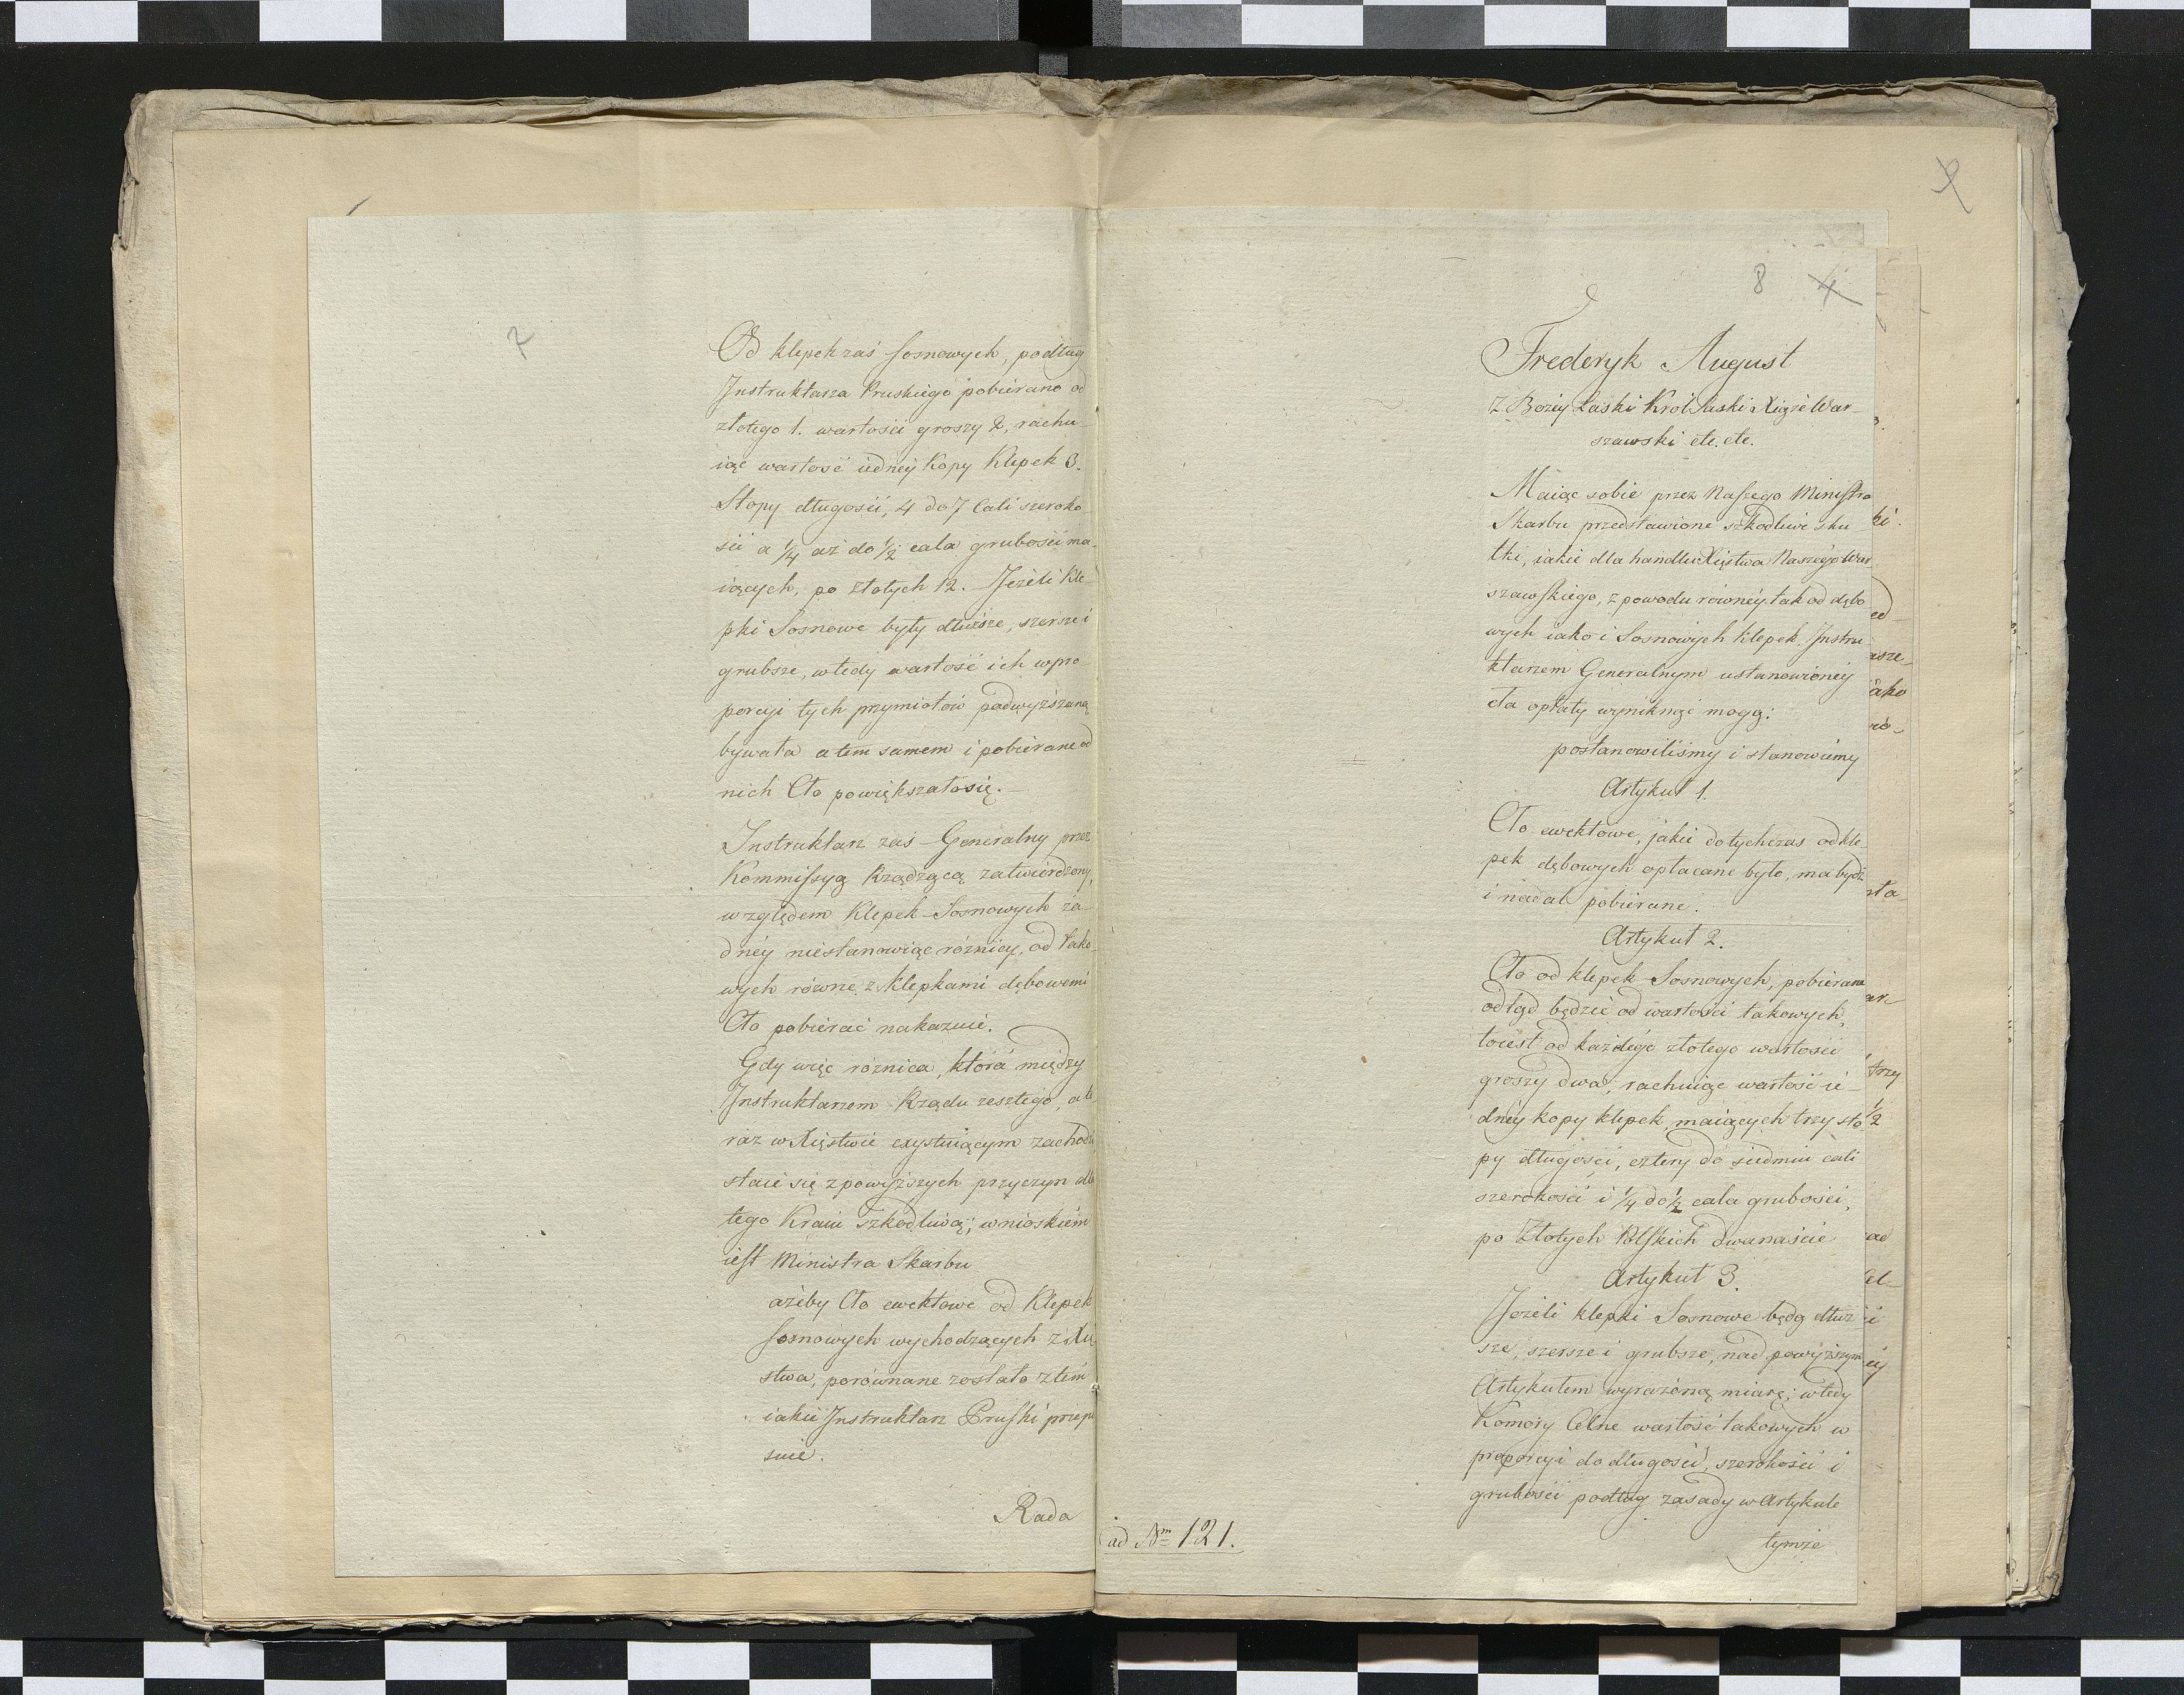 7
Od klepek zaś sosnowych, podług
Instruktarza Pruskiego pobierano od
złotego 1. wartości groszy 2, rachu-
iąc wartość iedney Kopy Klepek 3.
Stopy długości, 4 do 7 Cali szeroko
ści a 1/4 aż do 1/2 cala grubości ma-
iących, po złotych 12. Jeżeli Kle-
pki Sosnowe były dłuższe, szersze i
grubsze, wtedy wartość ich w pro
porcyi tych przymiotów podwyższaną
bywała a tem samem i pobierane od
nich Cło powiększało się.—
Instruktarz zaś Generalny przez
Kommissyą Rządzącą zatwierdzony,
względem Klepek Sosnowych ża-
dnéy niestanowiąc różnicy, od tako-
wych równe z Klepkami dębowemi
Cło pobierać nakazuie.
Gdy więc różnica, która między
Instruktarzem Rządu zeszłego, a te
raz w Xięstwie exystuiącym zachodzi
staie się z powyższych przyczyn dla
tego Kraiu szkodliwą; wnioskiem
iest Ministra Skarbu
ażeby Cło ewektowe od Klepek
sosnowych wychodzących z Xię
stwa, porównane zostało z tém
iakie Instruktarz Pruski przepi
suie.
Rada
8 4
Frederyk August
Z Bożey Łaski Król Saski Xiąże War-
szawski etc. etc.
Maiąc sobie przez Naszego Ministra
Skarbu przedstawione szkodliwe sku
tki, iakie dla handlu Xięstwa Naszego War
szawskiego, z powodu równéy tak od dębo
wych iako i Sosnowych klepek Instru
ktarzem Generalnym ustanowioney
cła opłaty wyniknąć mogą:
postanowiliśmy i stanowiemy
Artykuł 1.
Cło ewektowe, jakie dotychczas od kle-
pek dębowych opłacane było, ma bydź
i nadal pobierane.
Artykuł 2.
Cło od klepek Sosnowych, pobierane
odtąd będzie od wartości takowych,
toiest od każdégo złotego wartości
groszy dwa, rachuiąc wartość ie-
dnéy kopy klepek, maiących trzy sto
py długości, cztery do siedmiu cali
szerokości i 1/4 do 1/2 cala grubości,
po Złotych Polskich dwanaście
Artykuł 3.
Jeżeli klepki Sosnowe będą dłuż
sze, szersze i grubsze, nad powyższym
Artykułem wyrażoną miarę; wtedy
Komory Celne wartość takowych w
proporcyi do długości, szerokości i
grubości podług zasady w Artykule
tymże
ad Nm 121.